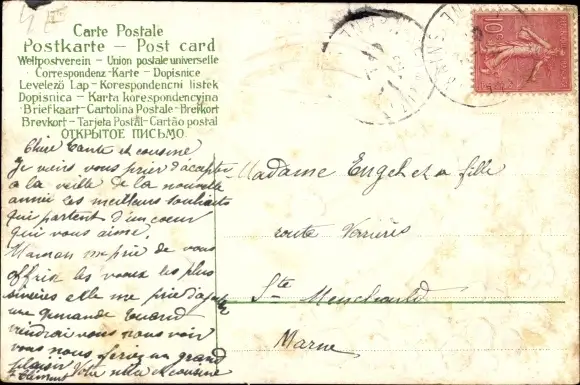 Carte Postale
Postkarte – Post card
Weltpostverein – Union postale universelle
Correspondenz-Karte – Dopisnice
Levelező Lap – Korespondencni listek
Dopisnica – Karta korespondencyjna
Briefkaart – Cartolina Postale – Brefkort
Brevkort – Tarjeta Postal – Cartão postal
ОТКРЫТОЕ ПИСЬМО.
Chère Tante et cousine
Je viens vous prier d'accepter
a la veille de la nouvelle
année les meilleurs souhaits
qui partent d'un cœur
qui vous aime.
Maman me prie de vous
offrir les vœux les plus
sincères elle me prie d'ajouter
une demande Quand
viendrai vous nous voir
vous nous feriez un grand
plaisir Votre nièce et cousine
Clément
Madame Engel et sa fille
route Verrières
Ste Menehould
Marne
10